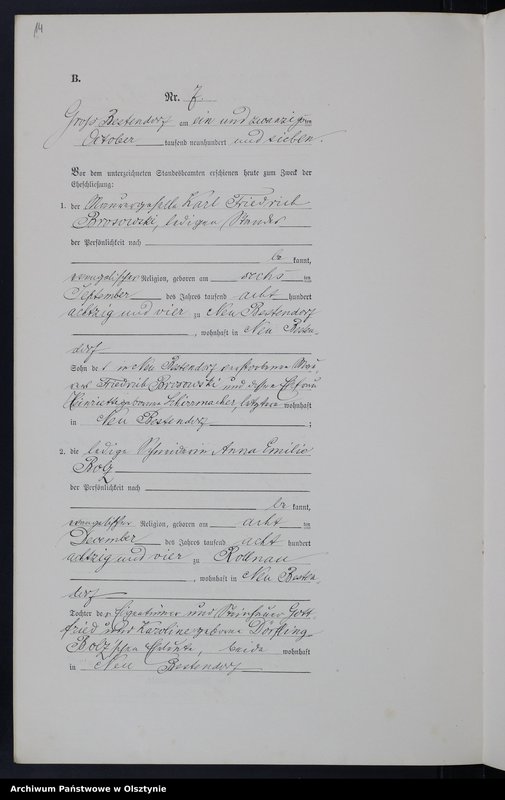 14
B.
Nr. 7.
Gross Bestendorf am ein und zwanzigsten
October tausend neunhundert und sieben.
Vor dem unterzeichneten Standesbeamten erschienen heute zum Zweck der
Eheschließung:
1. der Maurergeselle Karl Friedrich
Brosowski, ledigen Standes
der Persönlichkeit nach
be kannt,
evangelischer Religion, geboren am sechs ten
September des Jahres tausend acht hundert
achtzig und vier zu Neu Bestendorf
, wohnhaft in Neu Besten-
dorf
Sohn des in Neu Bestendorf verstorbenen Mau-
rers Friedrich Brosowski und dessen Ehefrau
Henriette geborene Schirrmacher, letztere wohnhaft
in Neu Bestendorf ;
2. die ledige Schneiderin Anna Emilie
Bolz
der Persönlichkeit nach
be kannt,
evangelischer Religion, geboren am acht ten
December des Jahres tausend acht hundert
achtzig und vier zu Rollnau
, wohnhaft in Neu Besten-
dorf
Tochter der Eigentümer und Gott-
fried und Karoline geborene Dörfling
Bolz'schen Eheleute, beide wohnhaft
in Neu Bestendorf
Archiwum Państwowe w Olsztynie